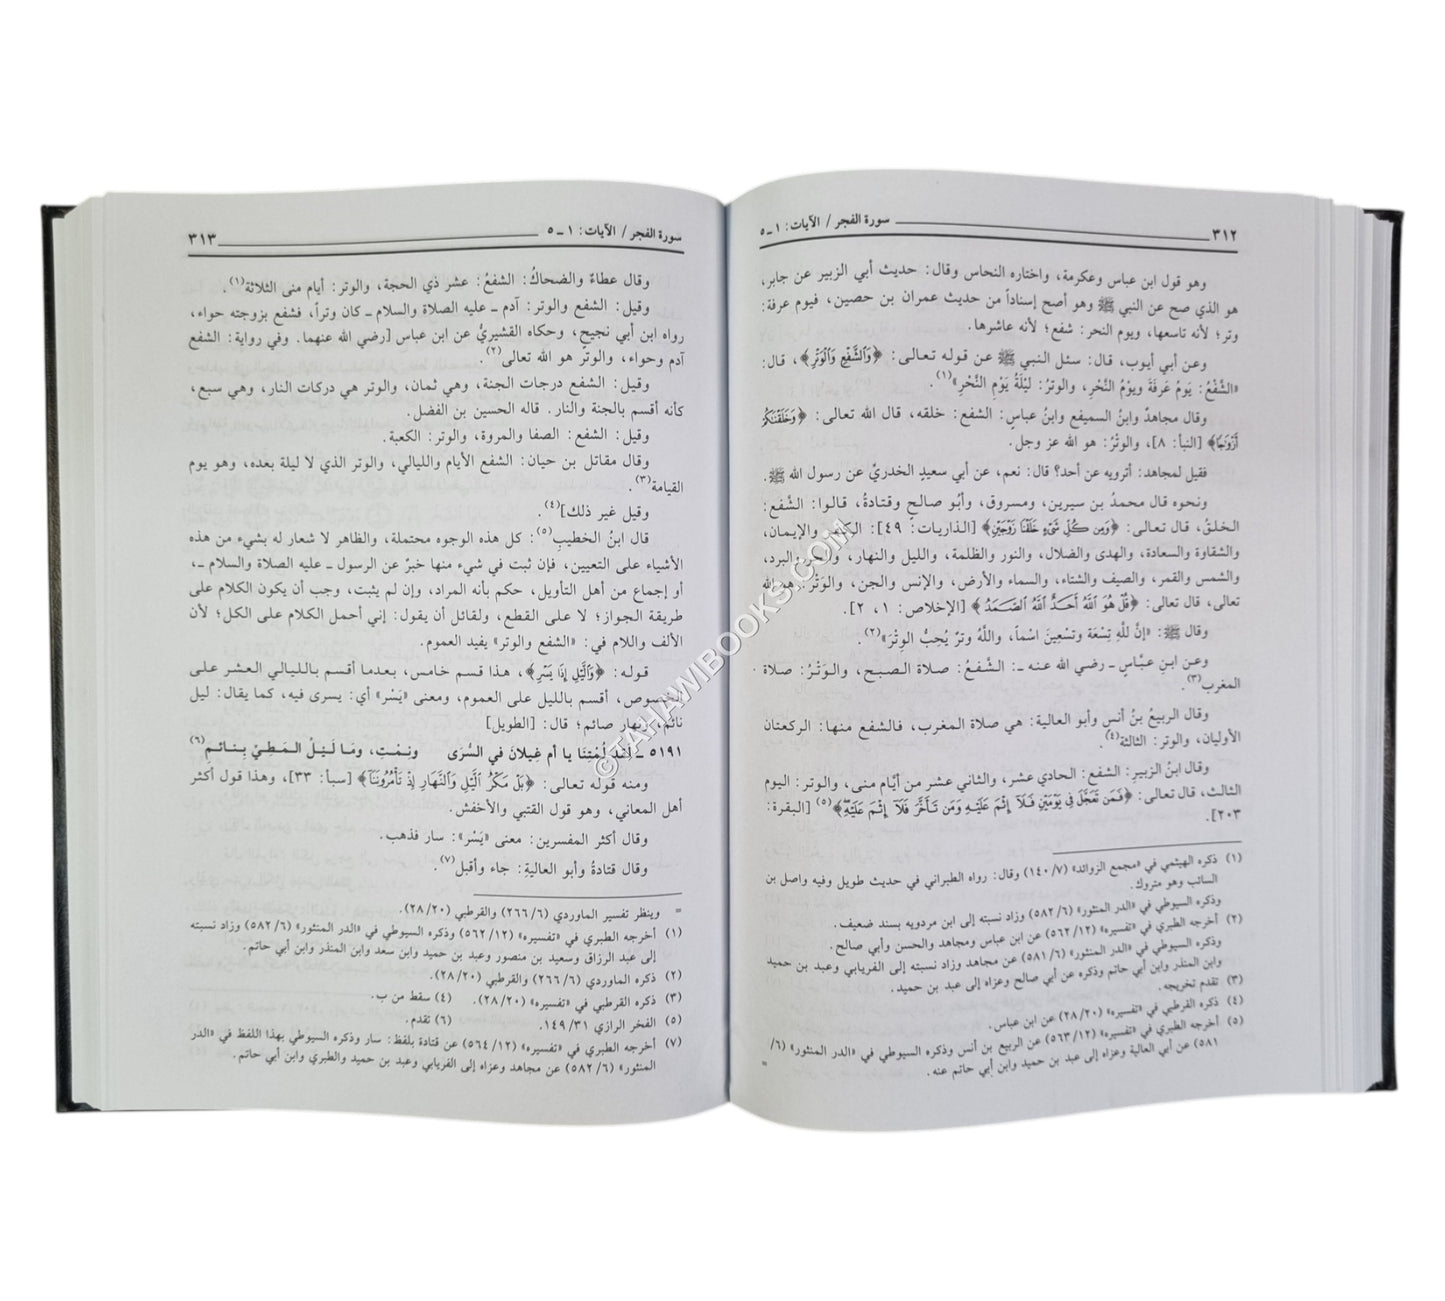 ٣١٢ سورة الفجر / الآيات: ١ ـ ٥
وهو قول ابن عباس وعكرمة، واختاره النحاس وقال: حديث أبي الزبير عن جابر،
هو الذي صح عن النبي ﷺ وهو أصح إسناداً من حديث عمران بن حصين، فيوم عرفة:
وتر؛ لأنه تاسعها، ويوم النحر: شفع؛ لأنه عاشرها.
وعن أبي أيوب، قال: سئل النبي ﷺ عن قوله تعالى: ﴿وَٱلشَّفْعِ وَٱلْوَتْرِ﴾، قال:
«الشَّفْعُ: يَومُ عَرفَةَ ويومُ النَّحْرِ، والوترُ: لَيْلَةُ يَوْمِ النَّحْرِ»(١).
وقال مجاهدٌ وابنُ السميفع وابنُ عباسٍ: الشفع: خلقه، قال الله تعالى: ﴿وَخَلَقْنَٰكُمْ
أَزْوَٰجًا﴾ [النبأ: ٨]، والوتْرُ: هو الله عز وجل.
فقيل لمجاهد: أترويه عن أحد؟ قال: نعم، عن أبي سعيدٍ الخدريِّ عن رسول الله ﷺ.
ونحوه قال محمدُ بن سيرين، ومسروق، وأبُو صالحٍ وقتادةُ، قالوا: الشَّفع:
الخلقُ، قال تعالى: ﴿وَمِن كُلِّ شَىْءٍ خَلَقْنَا زَوْجَيْنِ﴾ [الذاريات: ٤٩]: الكفر والإيمان،
والشقاوة والسعادة، والهدى والضلال، والنور والظلمة، والليل والنهار، والحر والبرد،
والشمس والقمر، والصيف والشتاء، والسماء والأرض، والإنس والجن، والوَتْرُ: هو الله
تعالى، قال تعالى: ﴿قُلْ هُوَ ٱللَّهُ أَحَدٌ ٱللَّهُ ٱلصَّمَدُ﴾ [الإخلاص: ١، ٢].
وقال ﷺ: «إنَّ للهِ تِسْعَة وتسْعِينَ اسْماً، واللَّهُ وترٌ يُحِبُّ الوِتْرَ»(٢).
وعن ابنِ عبَّاسٍ ـ رضي الله عنه ـ: الشَّفعُ: صلاة الصبح، والوَتْرُ: صلاة
المغرب(٣).
وقال الربيعُ بنُ أنسٍ وأبو العالية: هي صلاة المغرب، فالشفع منها: الركعتان
الأوليان، والوتر: الثالثة(٤).
وقال ابنُ الزبيرِ: الشفع: الحادي عشر، والثاني عشر من أيَّام منى، والوتر: اليوم
الثالث، قال تعالى: ﴿فَمَن تَعَجَّلَ فِى يَوْمَيْنِ فَلَآ إِثْمَ عَلَيْهِ وَمَن تَأَخَّرَ فَلَآ إِثْمَ عَلَيْهِ﴾(٥) [البقرة:
٢٠٣].
(١) ذكره الهيثمي في «مجمع الزوائد» (٧/ ١٤٠) وقال: رواه الطبراني في حديث طويل وفيه واصل بن
السائب وهو متروك.
وذكره السيوطي في «الدر المنثور» (٦/ ٥٨٢) وزاد نسبته إلى ابن مردويه بسند ضعيف.
(٢) أخرجه الطبري في «تفسيره» (١٢/ ٥٦٢) عن ابن عباس ومجاهد والحسن وأبي صالح.
وذكره السيوطي في «الدر المنثور» (٦/ ٥٨١) عن مجاهد وزاد نسبته إلى الفريابي وعبد بن حميد
وابن المنذر وابن أبي حاتم وذكره عن أبي صالح وعزاه إلى عبد بن حميد.
(٣) تقدم تخريجه.
(٤) ذكره القرطبي في «تفسيره» (٢٠/ ٢٨) عن ابن عباس.
(٥) أخرجه الطبري في «تفسيره» (١٢/ ٥٦٣) عن الربيع بن أنس وذكره السيوطي في «الدر المنثور» (٦/
٥٨١) عن أبي العالية وعزاه إلى عبد بن حميد وابن أبي حاتم عنه. =
سورة الفجر / الآيات: ١ ـ ٥ ٣١٣
وقال عطاءٌ والضحاكُ: الشفعُ: عشر ذي الحجة، والوتر: أيام منى الثلاثة(١).
وقيل: الشفع والوتر: آدم ـ عليه الصلاة والسلام ـ كان وتراً، فشفع بزوجته حواء،
رواه ابن أبي نجيح، وحكاه القشيريُّ عن ابن عباس [رضي الله عنهما. وفي رواية: الشفع
آدم وحواء، والوتر هو الله تعالى(٢).
وقيل: الشفع درجات الجنة، وهي ثمان، والوتر هي دركات النار، وهي سبع،
كأنه أقسم بالجنة والنار. قاله الحسين بن الفضل.
وقيل: الشفع: الصفا والمروة، والوتر: الكعبة.
وقال مقاتل بن حيان: الشفع الأيام والليالي، والوتر الذي لا ليلة بعده، وهو يوم
القيامة(٣).
وقيل غير ذلك](٤).
قال ابنُ الخطيبِ(٥): كل هذه الوجوه محتملة، والظاهر لا شعار له بشيء من هذه
الأشياء على التعيين، فإن ثبت في شيء منها خبرٌ عن الرسول ـ عليه الصلاة والسلام ـ،
أو إجماع من أهل التأويل، حكم بأنه المراد، وإن لم يثبت، وجب أن يكون الكلام على
طريقة الجواز؛ لا على القطع، ولقائل أن يقول: إني أحمل الكلام على الكل؛ لأن
الألف واللام في: «الشفع والوتر» يفيد العموم.
قوله: ﴿وَٱلَّيْلِ إِذَا يَسْرِ﴾، هذا قسم خامس، بعدما أقسم بالليالي العشر على
الخصوص، أقسم بالليل على العموم، ومعنى «يَسْر» أي: يسرى فيه، كما يقال: ليل
نائم، ونهار صائم؛ قال: [الطويل]
٥١٩١ ـ لَقَدْ لُمْتِنَا يا أم غيلانَ في السُّرَى ونِمْتِ، ومَا لَيْلُ المَطِيِّ بِنائمِ(٦)
ومنه قوله تعالى: ﴿بَلْ مَكْرُ ٱلَّيْلِ وَٱلنَّهَارِ إِذْ تَأْمُرُونَنَآ﴾ [سبأ: ٣٣]، وهذا قول أكثر
أهل المعاني، وهو قول القتبي والأخفش.
وقال أكثر المفسرين: معنى «يَسْر»: سار فذهب.
وقال قتادةُ وأبو العالية: جاء وأقبل(٧).
= وينظر تفسير الماوردي (٦/ ٢٦٦) والقرطبي (٢٠/ ٢٨).
(١) أخرجه الطبري في «تفسيره» (١٢/ ٥٦٢) وذكره السيوطي في «الدر المنثور» (٦/ ٥٨٢) وزاد نسبته
إلى عبد الرزاق وسعيد بن منصور وعبد بن حميد وابن سعد وابن المنذر وابن أبي حاتم.
(٢) ذكره الماوردي (٦/ ٢٦٦) والقرطبي (٢٠/ ٢٨).
(٣) ذكره القرطبي في «تفسيره» (٢٠/ ٢٨). (٤) سقط من ب.
(٥) الفخر الرازي ٣١/ ١٤٩. (٦) تقدم.
(٧) أخرجه الطبري في «تفسيره» (١٢/ ٥٦٤) عن قتادة بلفظ: سار وذكره السيوطي بهذا اللفظ في «الدر
المنثور» (٦/ ٥٨٢) عن مجاهد وعزاه إلى الفريابي وعبد بن حميد والطبري وابن أبي حاتم.
© TAHAWIBOOKS.COM